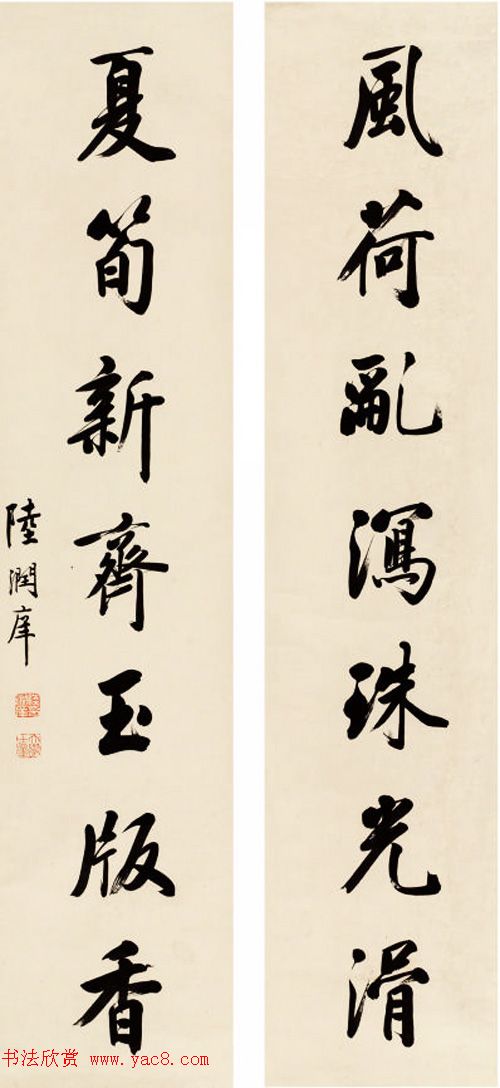 風荷亂瀉珠光滑
夏筍新齊玉版香
陸潤庠
书法欣赏 www.yac8.com